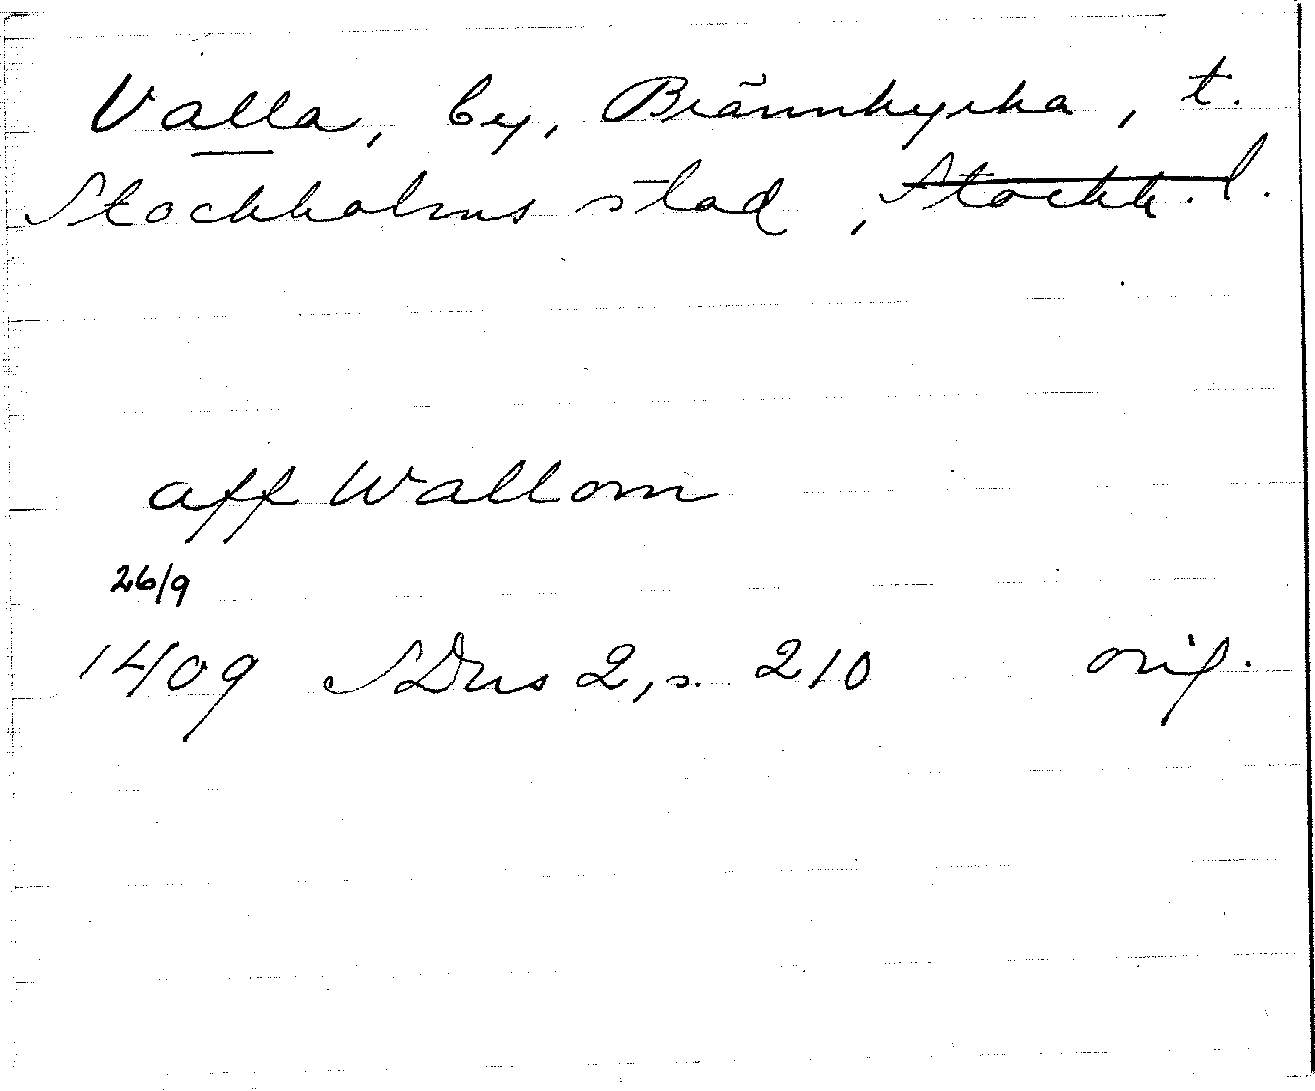 Valla, by, Brännkyrka, t.
Stockholms stad, Stockh. l.
aff Wallom
26/9
1409 SDns 2, s. 210 orig.